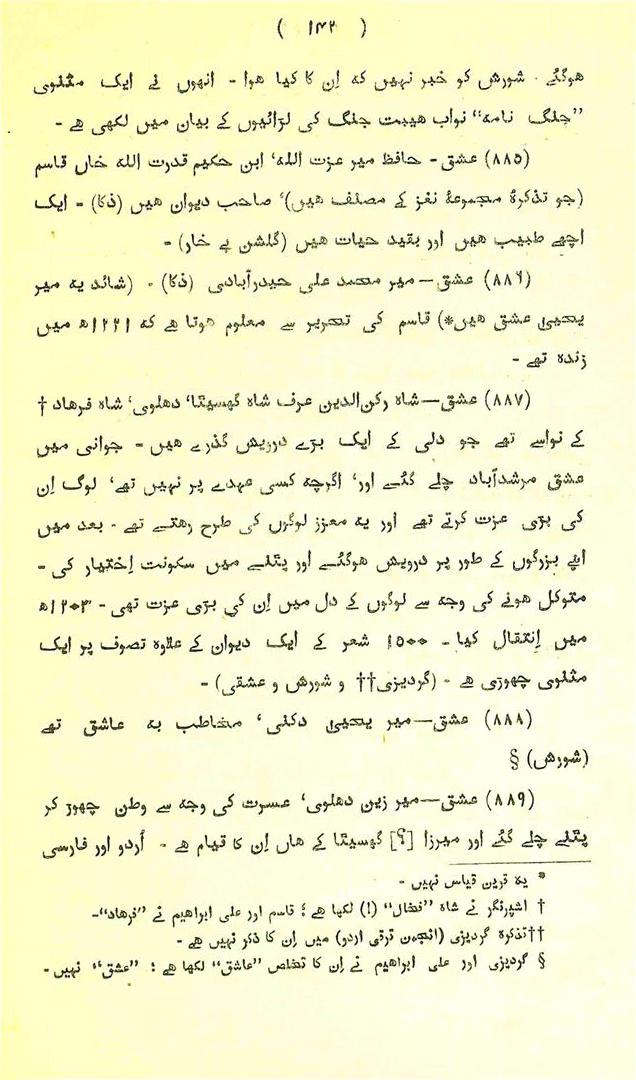 ( ۱۴۲ )
هوگئے ۔ شورش کو خبر نہیں که اِن کا کیا هوا ۔ انهوں نے ایک مثنوی
”جنگ نامه“ نواب هیبت جنگ کی لڑائیوں کے بیان میں لکھی هے ۔
(۸۸۵) عشق ۔ حافظ میر عزت الله‘ ابن حکیم قدرت الله خاں قاسم
(جو تذکرۂ مجموعۂ نغز کے مصنف هیں)‘ صاحب دیوان هیں (ذکا) ۔ ایک
اچھے طبیب هیں اور بقید حیات هیں (گلشن بے خار) ۔
(۸۸۶) عشق — میر محمد علی حیدرآبادی (ذکا) ۔ (شائد یه میر
یحییٰ عشق هیں*) قاسم کی تحریر سے معلوم هوتا هے که ۱۲۲۱ھ میں
زنده تھے ۔
(۸۸۷) عشق — شاہ رکن‌الدین عرف شاہ گھسیٹا‘ دهلوی‘ شاہ فرهاد †
کے نواسے تھے جو دلی کے ایک بڑے درویش گذرے هیں ۔ جوانی میں
عشق مرشدآباد چلے گئے اور‘ اگرچه کسی عہدے پر نہیں تھے‘ لوگ اِن
کی بڑی عزت کرتے تھے اور یه معزز لوگوں کی طرح رهتے تھے ۔ بعد میں
اپنے بزرگوں کے طور پر درویش هوگئے اور پٹنے میں سکونت اِختیار کی ۔
متوکل هونے کی وجه سے لوگوں کے دل میں اِن کی بڑی عزت تھی ۔ ۱۲۰۳ھ
میں اِنتقال کیا ۔ ۱۵۰۰ شعر کے ایک دیوان کے علاوہ تصوف پر ایک
مثنوی چھوڑی هے ۔ (گردیزی†† و شورش و عشقی) ۔
(۸۸۸) عشق — میر یحییٰ دکنی‘ مخاطب به عاشق تھے
(شورش) §
(۸۸۹) عشق — میر زین دهلوی‘ عسرت کی وجه سے وطن چھوڑ کر
پٹنے چلے گئے اور میرزا [؟] گھسیٹا کے هاں اِن کا قیام هے ۔ اُردو اور فارسی
* یه قرین قیاس نہیں ۔
† اشپرنگر نے شاہ ”فضال“ (!) لکھا هے ؛ قاسم اور علی ابراهیم نے ”فرهاد“ ۔
†† تذکرہ گردیزی (انجمن ترقی اردو) میں اِن کا ذکر نہیں هے ۔
§ گردیزی اور علی ابراهیم نے اِن کا تخلص ”عاشق“ لکھا هے ؛ ”عشق“ نہیں ۔